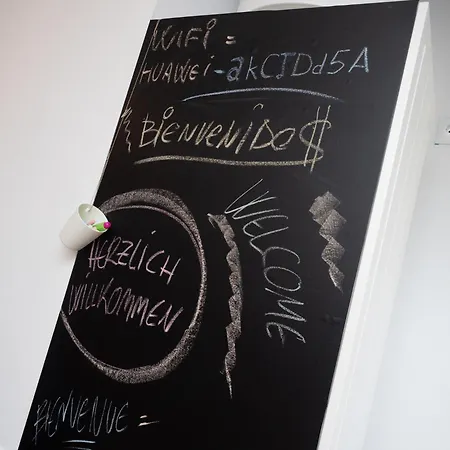 WiFi =
HUAWEi-akCJDd5A
BiENVENiDO$
WELCOME
HERZLICH
WILLKOMMEN
BIENVENUE =